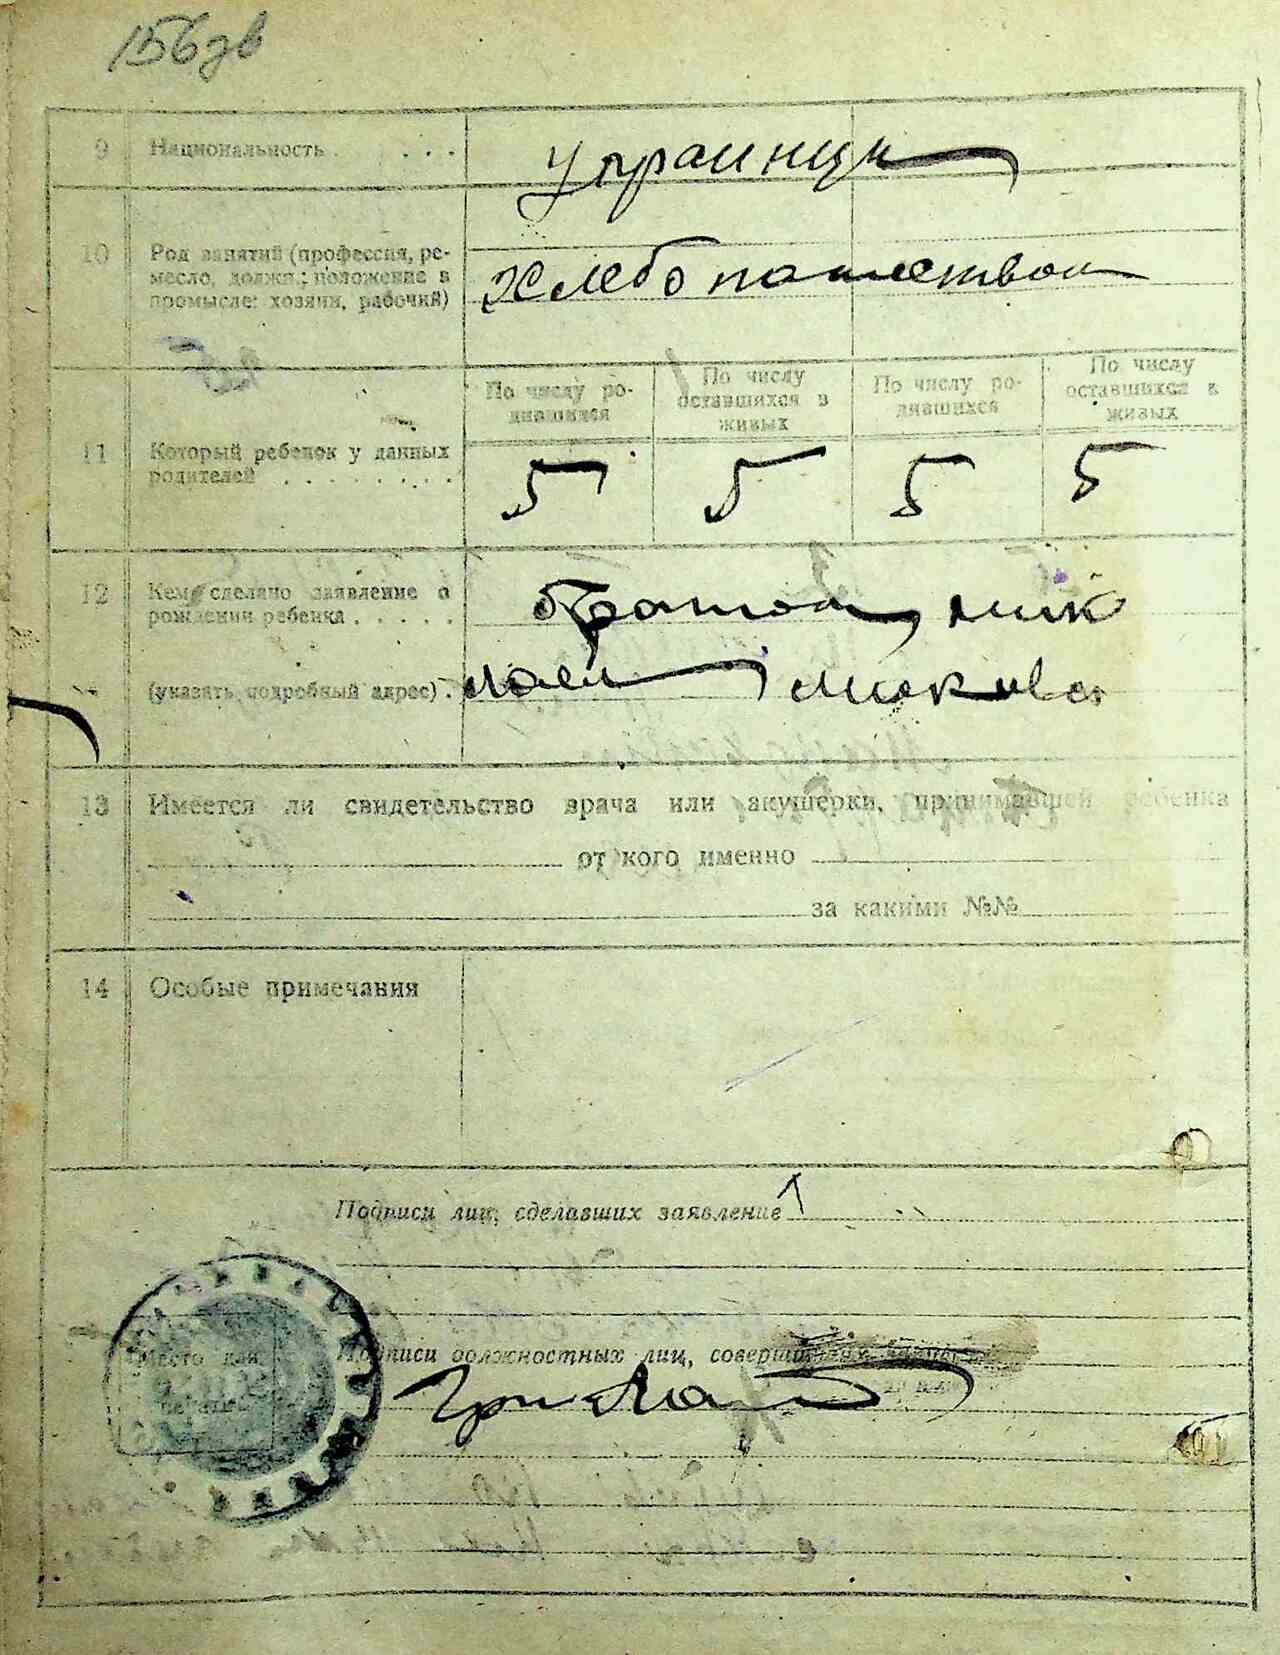 156 зв
9 Национальность . . . . украинци
10 Род занятий (профессия, ре-
месло, должн.; положение в
промысле: хозяин, рабочий)
Хлебопашеством
По числу ро-
дившихся
По числу
оставшихся в
живых
По числу ро-
дившихся
По числу
оставшихся в
живых
11 Который ребенок у данных
родителей . . . . . . . .
5 5 5 5
12 Кем сделано заявление о
рождении ребенка . . . . .
братом
(указать подробный адрес) .
13 Имеется ли свидетельство врача или акушерки, принимавшей ребенка
от кого именно
за какими №№
14 Особые примечания
Подписи лиц, сделавших заявление
Подписи должностных лиц,
Место для
печати